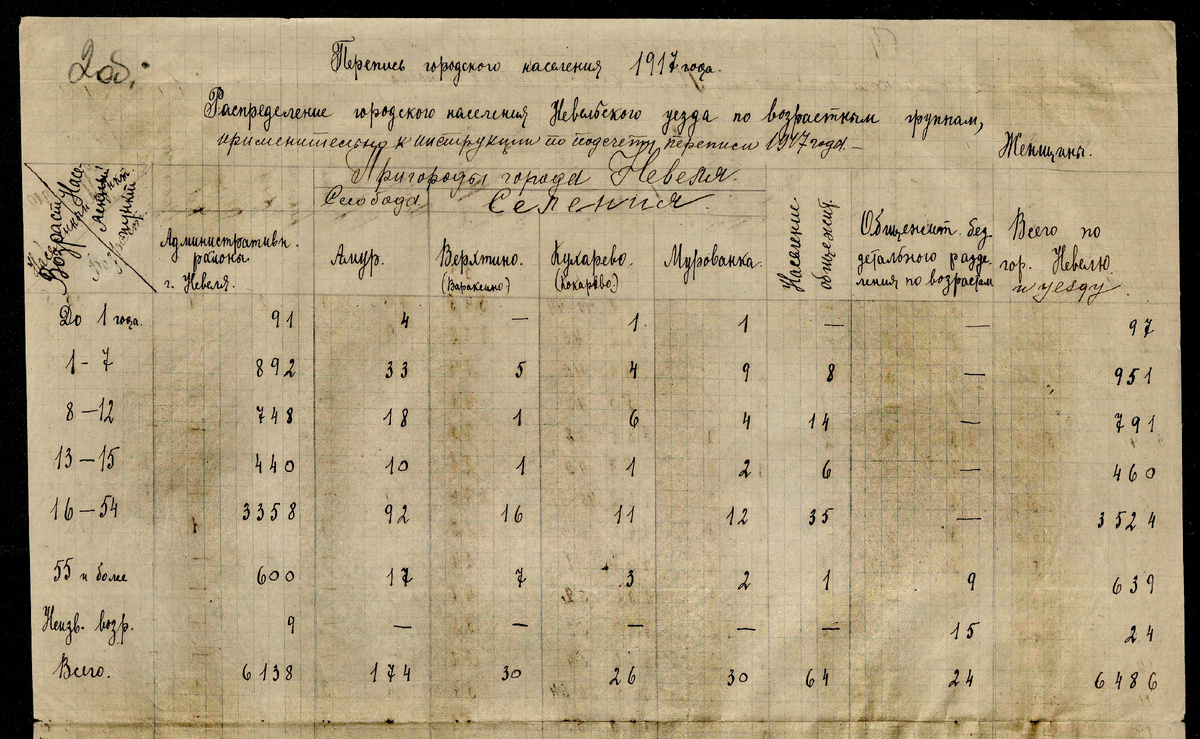 2 об.
Перепись городского населения 1917 года.
Распределение городского населения Невельского уезда по возрастным группам,
применительно к инструкции по подсчету переписи 1917 года. –
Женщины.
Пригороды города Невеля.
Слобода Селения.
Возраст Население
Административн. районы г. Невеля.
Амур.
Верятино. (Вараксино)
Кухарево. (Кокарево.)
Мурованка.
Население общежит.
Общежит. без детального разделения по возрастам
Всего по гор. Невелю и уезду.
До 1 года. 91 4 — 1 1 — — 97
1 – 7 892 33 5 4 9 8 — 951
8 – 12 748 18 1 6 4 14 — 791
13 – 15 440 10 1 1 2 6 — 460
16 – 54 3358 92 16 11 12 35 — 3524
55 и более 600 17 7 3 2 1 9 639
Неизв. возр. 9 — — — — — 15 24
Всего. 6138 174 30 26 30 64 24 6486